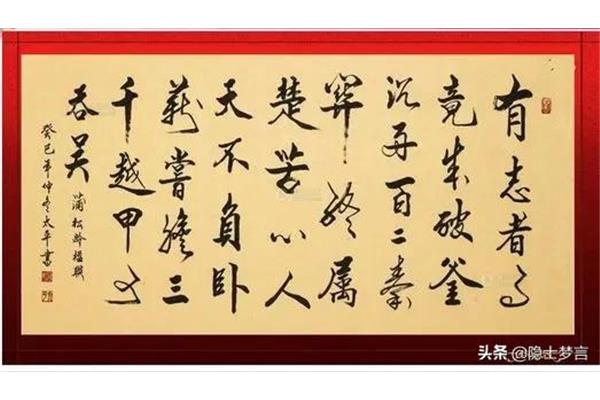 有志者事
竟成破釜
沉舟百二秦
關終属
楚苦心人
天不負卧
薪嘗膽三
千越甲可
吞吴
蒲松龄楹联
癸巳年仲冬太平書
头条 @隐士梦言